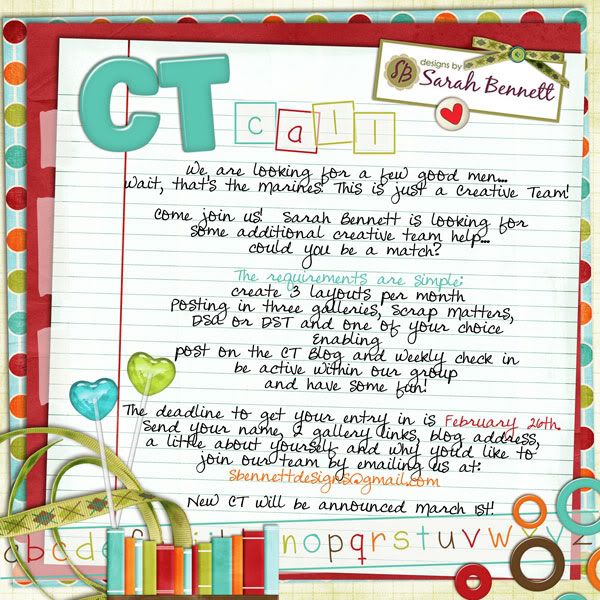 CT call
designs by
SB Sarah Bennett
We are looking for a few good men...
wait, that's the Marines! This is just a Creative Team!
Come join us! Sarah Bennett is looking for
some additional creative team help...
could you be a match?
The requirements are simple:
create 3 layouts per month
Posting in three galleries, Scrap Matters,
DSA or DST and one of your choice
Enabling
post on the CT Blog and weekly check in
be active within our group
and have some fun!
The deadline to get your entry in is February 26th.
Send your name, 2 gallery links, blog address,
a little about yourself and why you'd like to
join our team by emailing us at:
sbennettdesigns@gmail.com
New CT will be announced March 1st!
abcde nopqrstuvwxyz